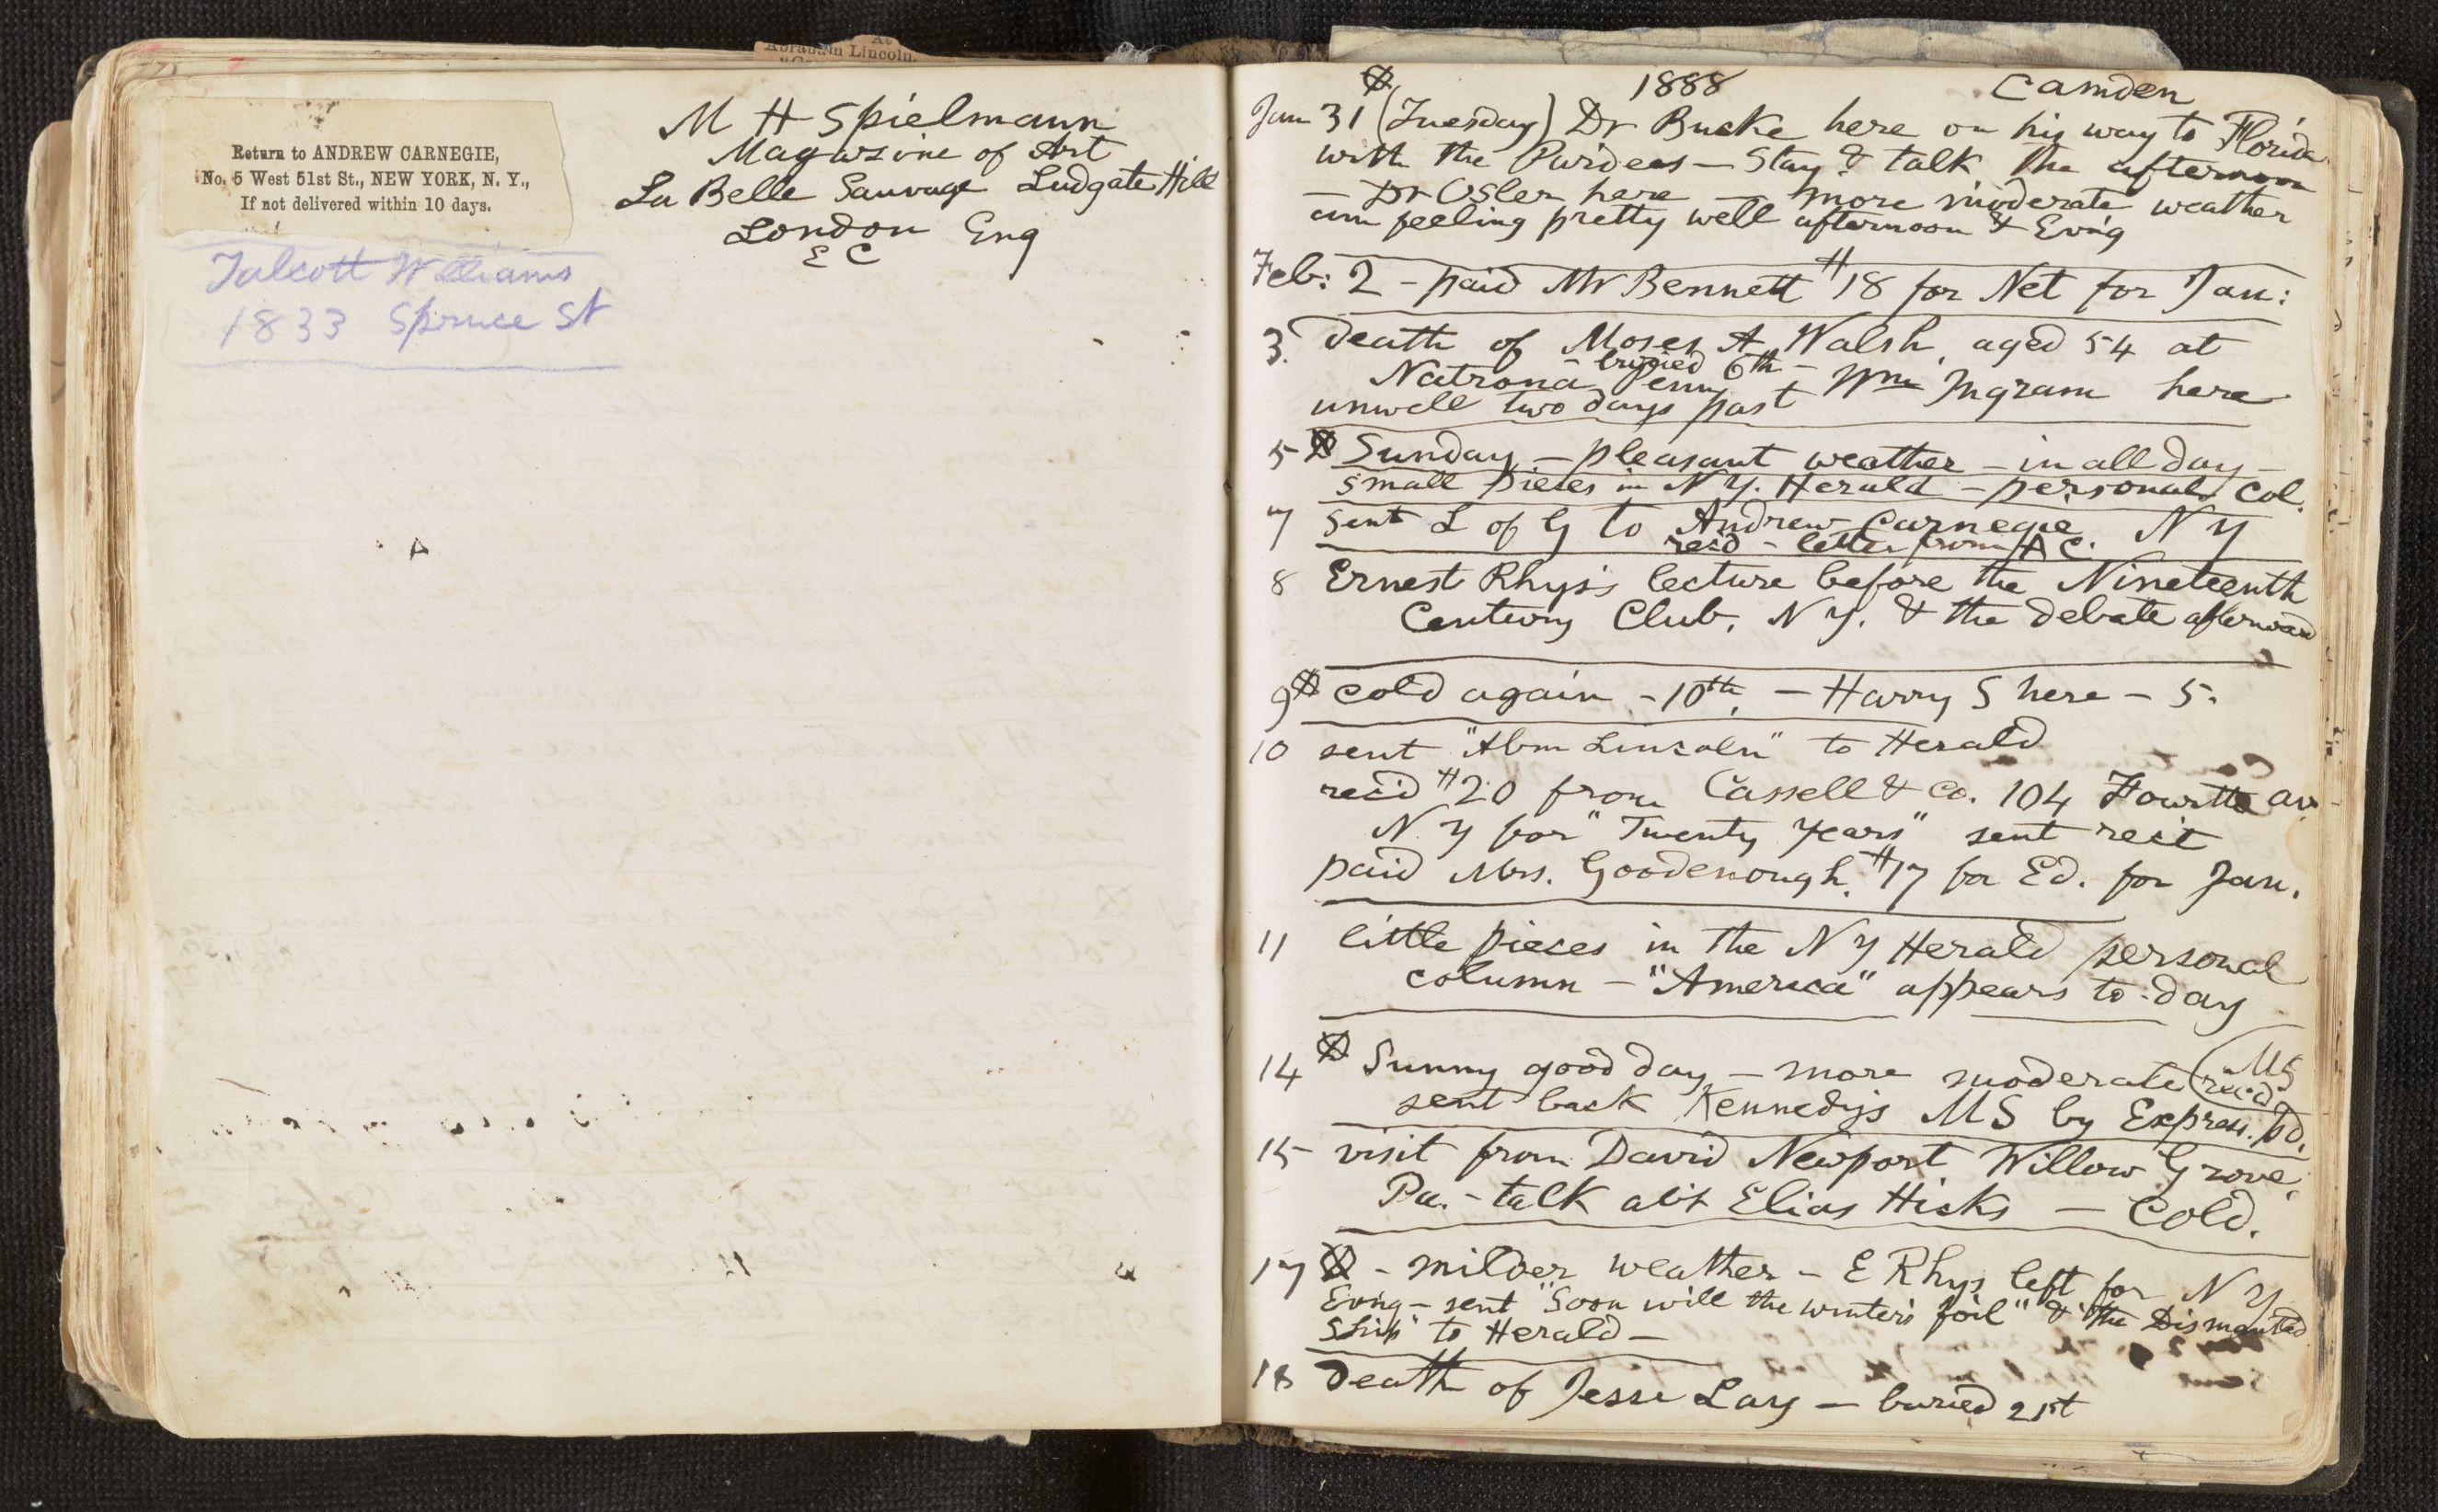 At
Abraham Lincoln.
Return to ANDREW CARNEGIE,
No. 5 West 51st St., NEW YORK, N. Y.,
If not delivered within 10 days.
Talcott Williams
1833 Spruce St
M H Spielmann
Magazine of Art
La Belle Sauvage Ludgate Hill
London Eng
E C
1888 Camden
Jan 31 (Tuesday) Dr Bucke here on his way to Florida
with the Pardees — Stay & talk the afternoon
— Dr Osler here — more moderate weather
am feeling pretty well afternoon & Ev'ng
Feb: 2 – paid Mr Bennett $18 for Net for Jan:
3. death of Moses A Walsh, aged 54 at
– buried 6th –
Natrona Penn Wm Ingram here
unwell two days past
5 Sunday – pleasant weather – in all day –
small pieces in N Y. Herald – personal col.
7 sent L of G to Andrew Carnegie. N Y
rec'd – letter from A C.
8 Ernest Rhys's lecture before the Nineteenth
Century Club, N Y. & the debate afterward
9 cold again – 10th. – Harry S here – 5.
10 sent "Abm Lincoln" to Herald
rec'd $20 from Cassell & Co. 104 Fourth av.
N Y for "Twenty Years" sent rec't
paid Mrs. Goodenough. $17 for Ed. for Jan.
11 little pieces in the N Y Herald personal
column – "America" appears to-day
14 Sunny good day – more moderate (MS
rec'd)
sent back Kennedy's MS by Express. p'd.
15 visit from David Newport Willow Grove,
Pa. – talk ab't Elias Hicks — Cold.
17 – milder weather – E Rhys left for N Y
Ev'ng – sent "Soon will the winter's foil" & "the Dismantled
Ship" to Herald —
18 death of Jesse Lay — buried 21st